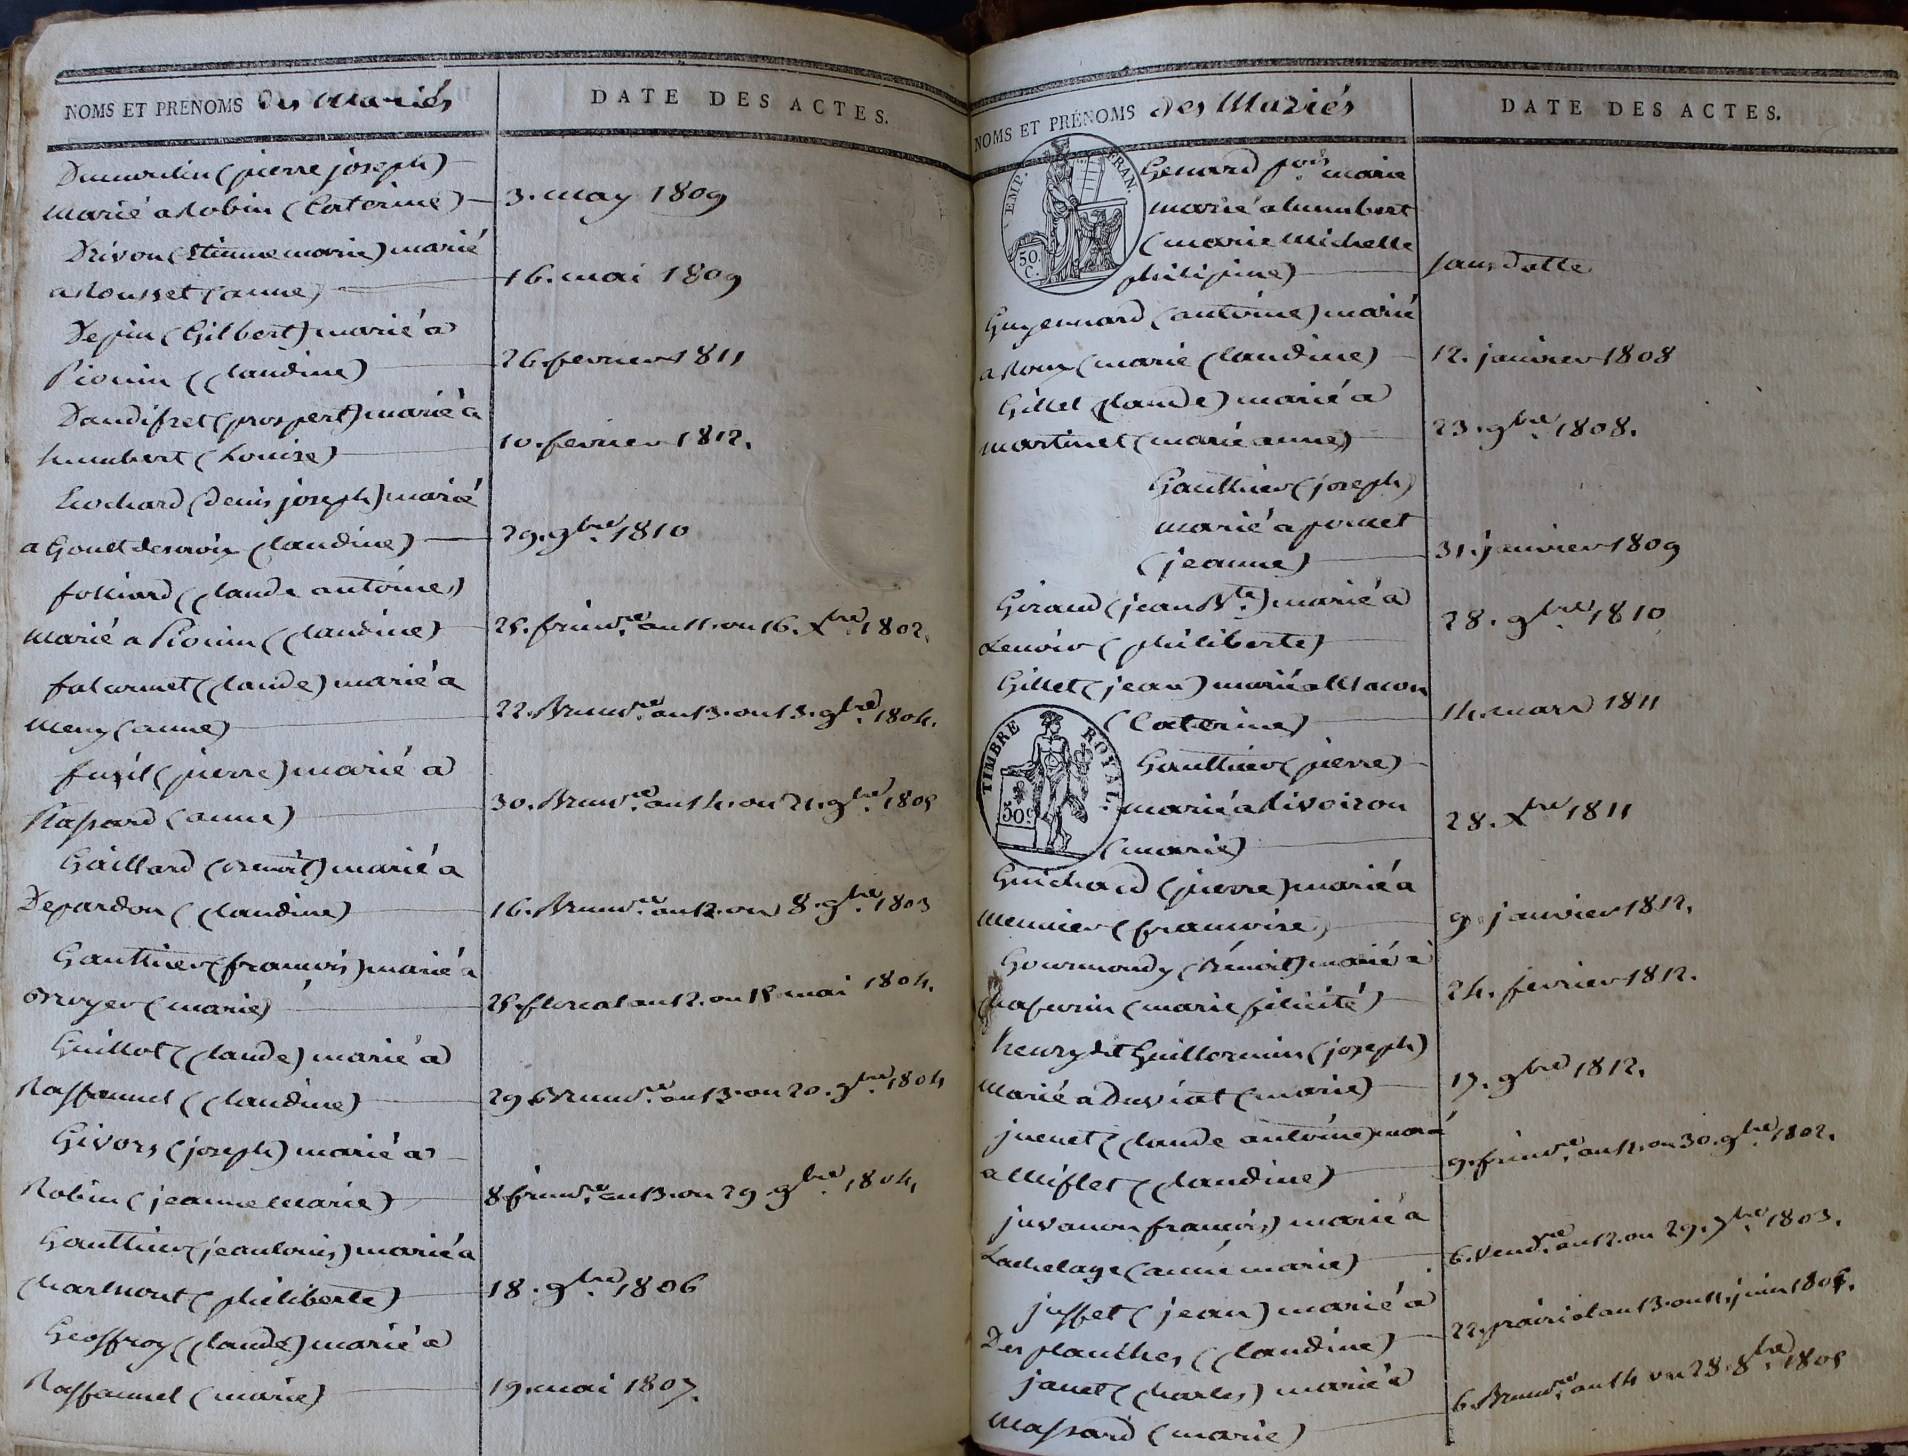 NOMS ET PRENOMS des Mariés
DATE DES ACTES.
Dumoulin (pierre joseph)
marié a Robin (Caterine)
3. may 1809
Drivon (Etienne marie) marié
a Rousset (anne)
16. mai 1809
Depin (Gilbert) marié a
Pionin (Claudine)
26. fevrier 1811
Dandifret (prospert) marié a
humbert (Louise)
10. fevrier 1812.
(Denis joseph) marié
a (Claudine)
29. 9bre 1810
folliard (Claude antoine)
marié a Pionin (Claudine)
25. frimre an 11. ou 16. Xbre 1802.
falconnet (Claude) marié a
(anne)
22. Brumre an 13. ou 13. 9bre 1804.
fuzil (pierre) marié a
Passard (anne)
30. Brumre an 14. ou 21. 9bre 1805
Gaillard (benoit) marié a
Depardon (Claudine)
16. Brumre an 12. ou 8. 9bre 1803
Gauthier (francois) marié a
Broyer (marie)
25. floreal an 12. ou 15 mai 1804.
Guillot (Claude) marié a
Raffannel (Claudine)
29 Brumre an 13. ou 20. 9bre 1804
Givors (joseph) marié a
Robin (jeanne Marie)
8 frimre an 13. ou 29 9bre 1804.
Gauthier (jean louis) marié a
Charlnout (philiberte)
18. 9bre 1806
Geoffroy (Claude) marié a
Raffannel (marie)
19. mai 1807.
NOMS ET PRÉNOMS des Mariés
DATE DES ACTES.
EMP. FRAN.
50.
C.
Genard fçois marie
marié a humbert
(marie Michelle
philipine)
sans datte
Guyennard (antoine) marié
a Roux (marie Claudine)
12. janvier 1808
Gillet (Claude) marié a
martinet (marie anne)
23. 9bre 1808.
Gauthier (joseph)
marié a
(jeanne)
31. janvier 1809
Giraud (jean Bte) marié a
Lenoir (philiberte)
28. 9bre 1810
Gillet (jean) marié a Macon
(Caterine)
14. mars 1811
TIMBRE ROYAL.
50c
Gauthier (pierre)
marié a Livoiron
(marie)
28. Xbre 1811
Guichard (pierre) marié a
Meunier (francoise)
9. janvier 1812.
Gourmondy (Bénoit) marié a
(marie félicité)
24. fevrier 1812.
henry dit Guillermin (joseph)
Marié a Duviat (marie)
17. 9bre 1812.
juenet (Claude antoine) marié
a Miflet (Claudine)
9. frimre an 11. ou 30. 9bre 1802.
juvanon francois) marié a
Lachelage (anne marie)
6. Vendre an 12. ou 29. 7bre 1803.
juffet (jean) marié a
Des planches (Claudine)
22. prairial an 13. ou 11. juin 1805.
janet (Charles) marié a
Massard (marie)
6. Brumre an 14 ou 28. 8bre 1805